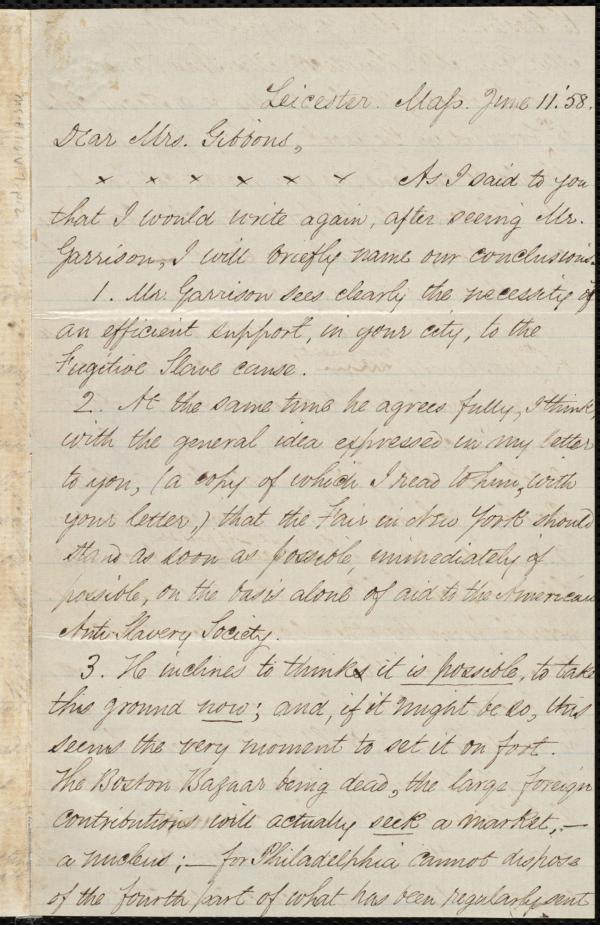 Leicester. Mass. June 11. '58.
Dear Mrs. Gibbons,
x x x x x x As I said to you
that I would write again, after seeing Mr.
Garrison, I will briefly name our conclusions.
1. Mr. Garrison sees clearly the necessity of
an efficient support, in your city, to the
Fugitive Slave cause.
2. At the same time he agrees fully, I think,
with the general idea expressed in my letter
to you, (a copy of which I read to him, with
your letter,) that the Fair in New York should
stand as soon as possible, immediately if
possible, on the basis alone of aid to the American
Anti-Slavery Society.
3. He inclines to think it is possible, to take
this ground now; and, if it might be so, this
seems the very moment to set it on foot.
The Boston Bazaar being dead, the large foreign
contributions will actually seek a market,—
a nucleus;—for Philadelphia cannot dispose
of the fourth part of what has been regularly sent